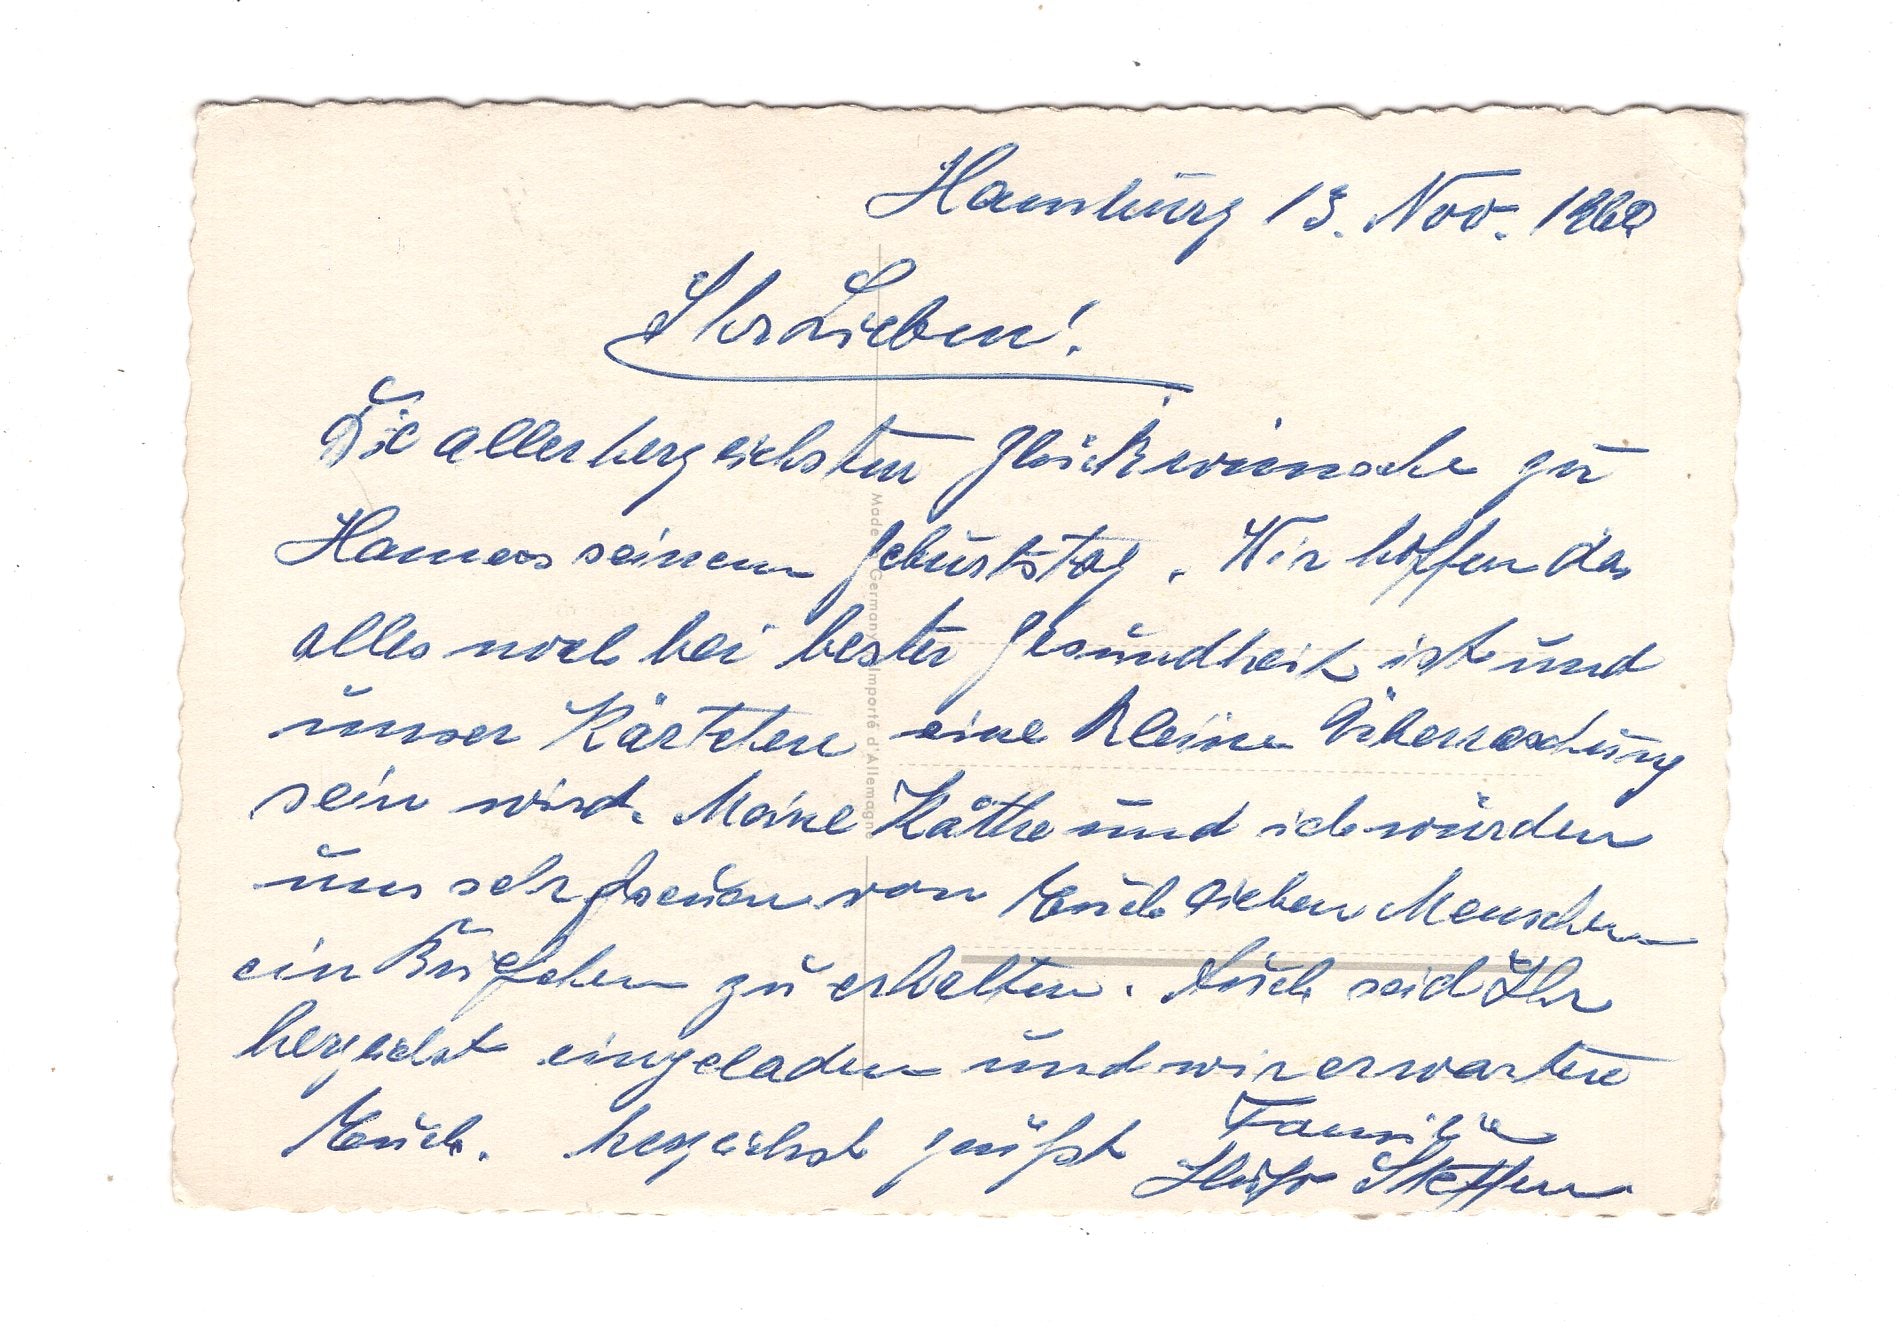 Hamburg 13. Nov. 1960
Ihr Lieben!
Die allerherzlichsten Glückwünsche zu
Hannes seinem Geburtstag. Wir hoffen das
alles noch bei bester Gesundheit ist und
unser Kärtchen eine kleine Überraschung
sein wird. Meine Käthe und ich würden
uns sehr freuen von Euch lieben Menschen
ein Briefchen zu erhalten. Auch seid Ihr
herzlichst eingeladen und wir erwarten
Euch. herzlichst grüßt Familie
Steffen
Made Germany Importé d'Allemagne